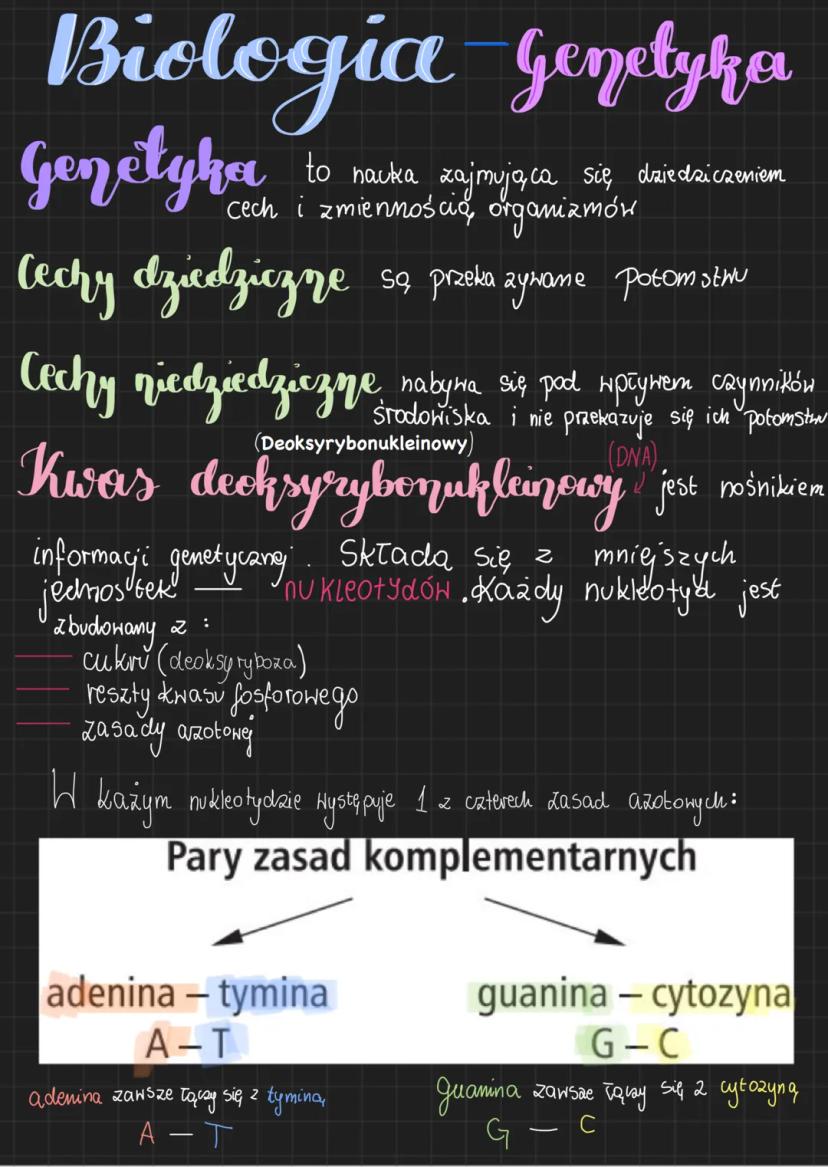 Biologia – Genetyka
Genetyka to nauka zajmująca się dziedziczeniem
cech i zmiennością organizmów
Cechy dziedziczne są przekazywane potomstwu
Cechy niedziedziczne nabywa się pod wpływem czynników
środowiska i nie przekazuje się ich potomstw
(Deoksyrybonukleinowy)
Kwas deoksyrybonukleinowy (DNA) jest nośnikiem
informacji genetycznej. Składa się z mniejszych
jednostek — nukleotydów. Każdy nukleotyd jest
zbudowany z :
— cukru (deoksyryboza)
— reszty kwasu fosforowego
— zasady azotowej
W każym nukleotydzie występuje 1 z czterech zasad azotowych:
Pary zasad komplementarnych
adenina – tymina guanina – cytozyna
A – T G – C
adenina zawsze łączy się z tyminą guanina zawsze łączy się z cytozyną
A — T G — C